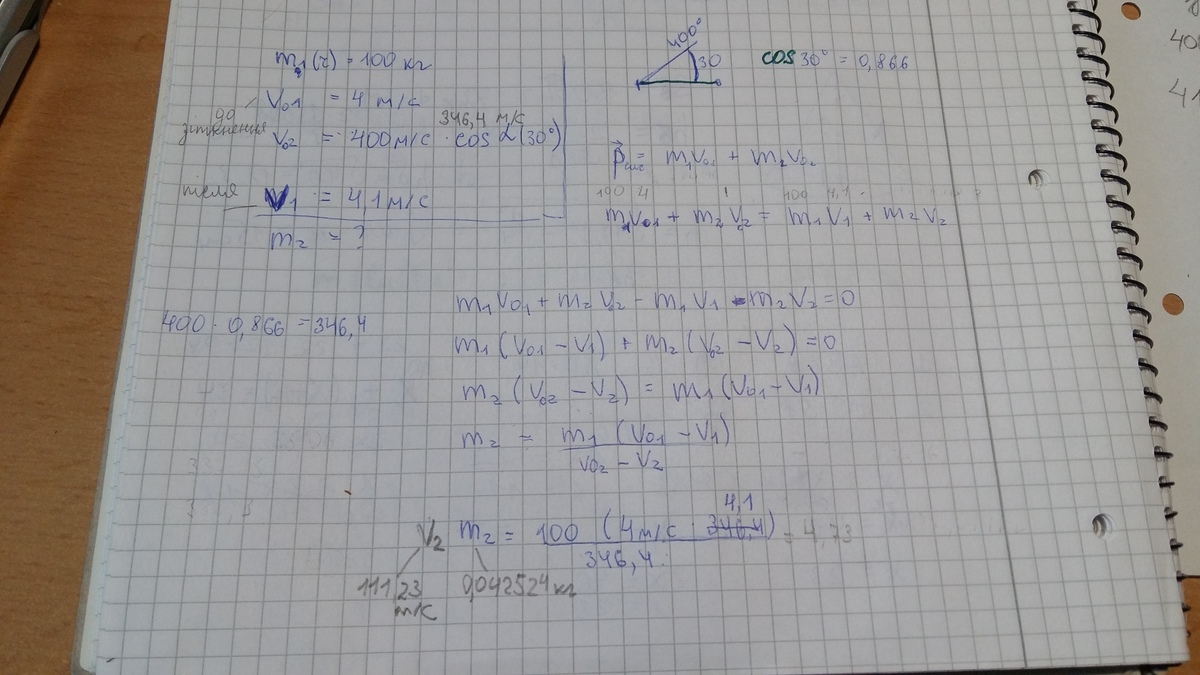 m₁(г) = 100 кг
V₀₁ = 4 м/с
до зіткнення
346,4 м/с
V₀₂ = 400м/с · cos α(30°)
після
V₁ = 4,1 м/с
m₂ = ?
400°
30
cos 30° = 0,866
p⃗ = m₁V₀₁ + m₂V₀₂
100 4 100 4,1
m₁V₀₁ + m₂V₂ = m₁V₁ + m₂V₂
400 · 0,866 = 346,4
m₁V₀₁ + m₂V₂ - m₁V₁ - m₂V₂ = 0
m₁(V₀₁ - V₁) + m₂(V₀₂ - V₂) = 0
m₂(V₀₂ - V₂) = m₁(V₀₁ - V₁)
m₂ = m₁(V₀₁ - V₁)
V₀₂ - V₂
4,1
V₂ m₂ = 100 (4м/с · 346,4) = 4,73
346,4
111,23 м/с 0,042524 кг
40
41